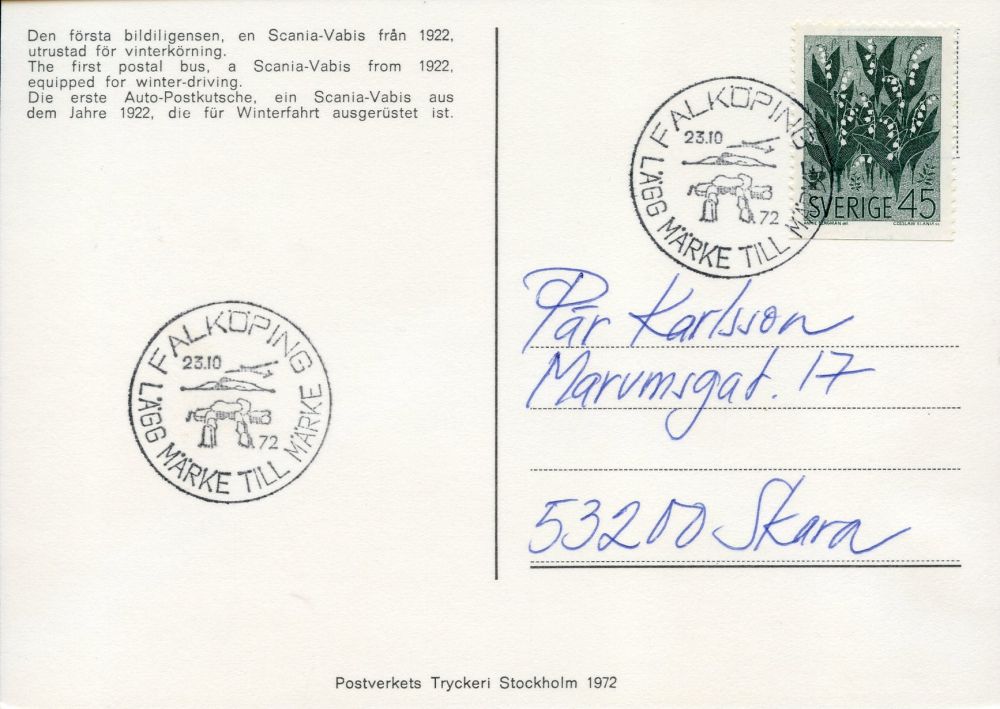 Den första bildiligensen, en Scania-Vabis från 1922,
utrustad för vinterkörning.
The first postal bus, a Scania-Vabis from 1922,
equipped for winter-driving.
Die erste Auto-Postkutsche, ein Scania-Vabis aus
dem Jahre 1922, die für Winterfahrt ausgerüstet ist.
FALKÖPING
23.10
72
LÄGG MÄRKE TILL MÄRKE
SVERIGE 45
CZESLAW SLANIA sc.
Pär Karlsson
Marumsgat. 17
53200 Skara
FALKÖPING
23.10
72
LÄGG MÄRKE TILL MÄRKE
Postverkets Tryckeri Stockholm 1972